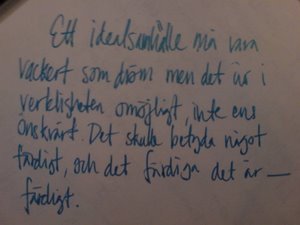 Ett idealsamhälle må vara
vackert som dröm men det är i
verkligheten omöjligt, inte ens
önskvärt. Det skulle betyda något
färdigt, och det färdiga det är —
färdigt.